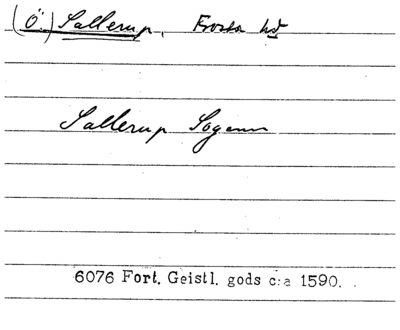 (Ö.) Sallerup, Frosta hd
Sallerup Sogenn
6076 Fort. Geistl. gods c:a 1590.